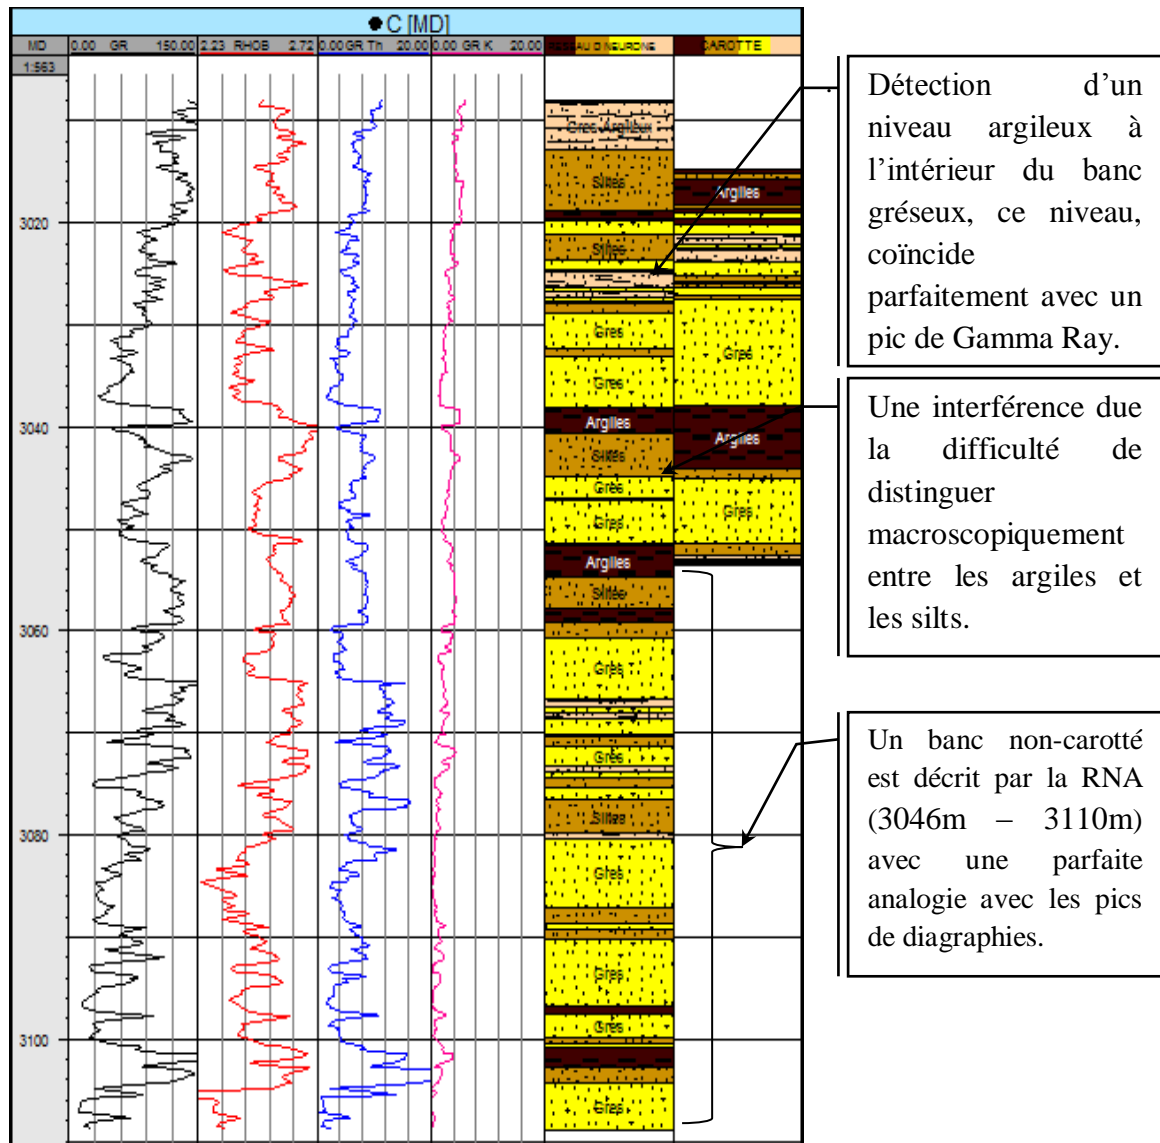 C [MD]
MD 0.00 GR 150.00 2.23 RHOB 2.72 0.00 GR Th 20.00 0.00 GR K 20.00 RESEAU D'NEURONE CAROTTE
1:563
Gres Argileux
Siltes
Argiles
3020
Siltes
Gres
Gres
Gres
3040
Argiles
Argiles
Siltes
Gres
Gres
Gres
Argiles
Siltes
3060
Gres
Gres
3080
Siltes
Gres
Gres
Gres
3100
Gres
Détection d’un
niveau argileux à
l’intérieur du banc
gréseux, ce niveau,
coïncide
parfaitement avec un
pic de Gamma Ray.
Une interférence due
la difficulté de
distinguer
macroscopiquement
entre les argiles et
les silts.
Un banc non-carotté
est décrit par la RNA
(3046m – 3110m)
avec une parfaite
analogie avec les pics
de diagraphies.